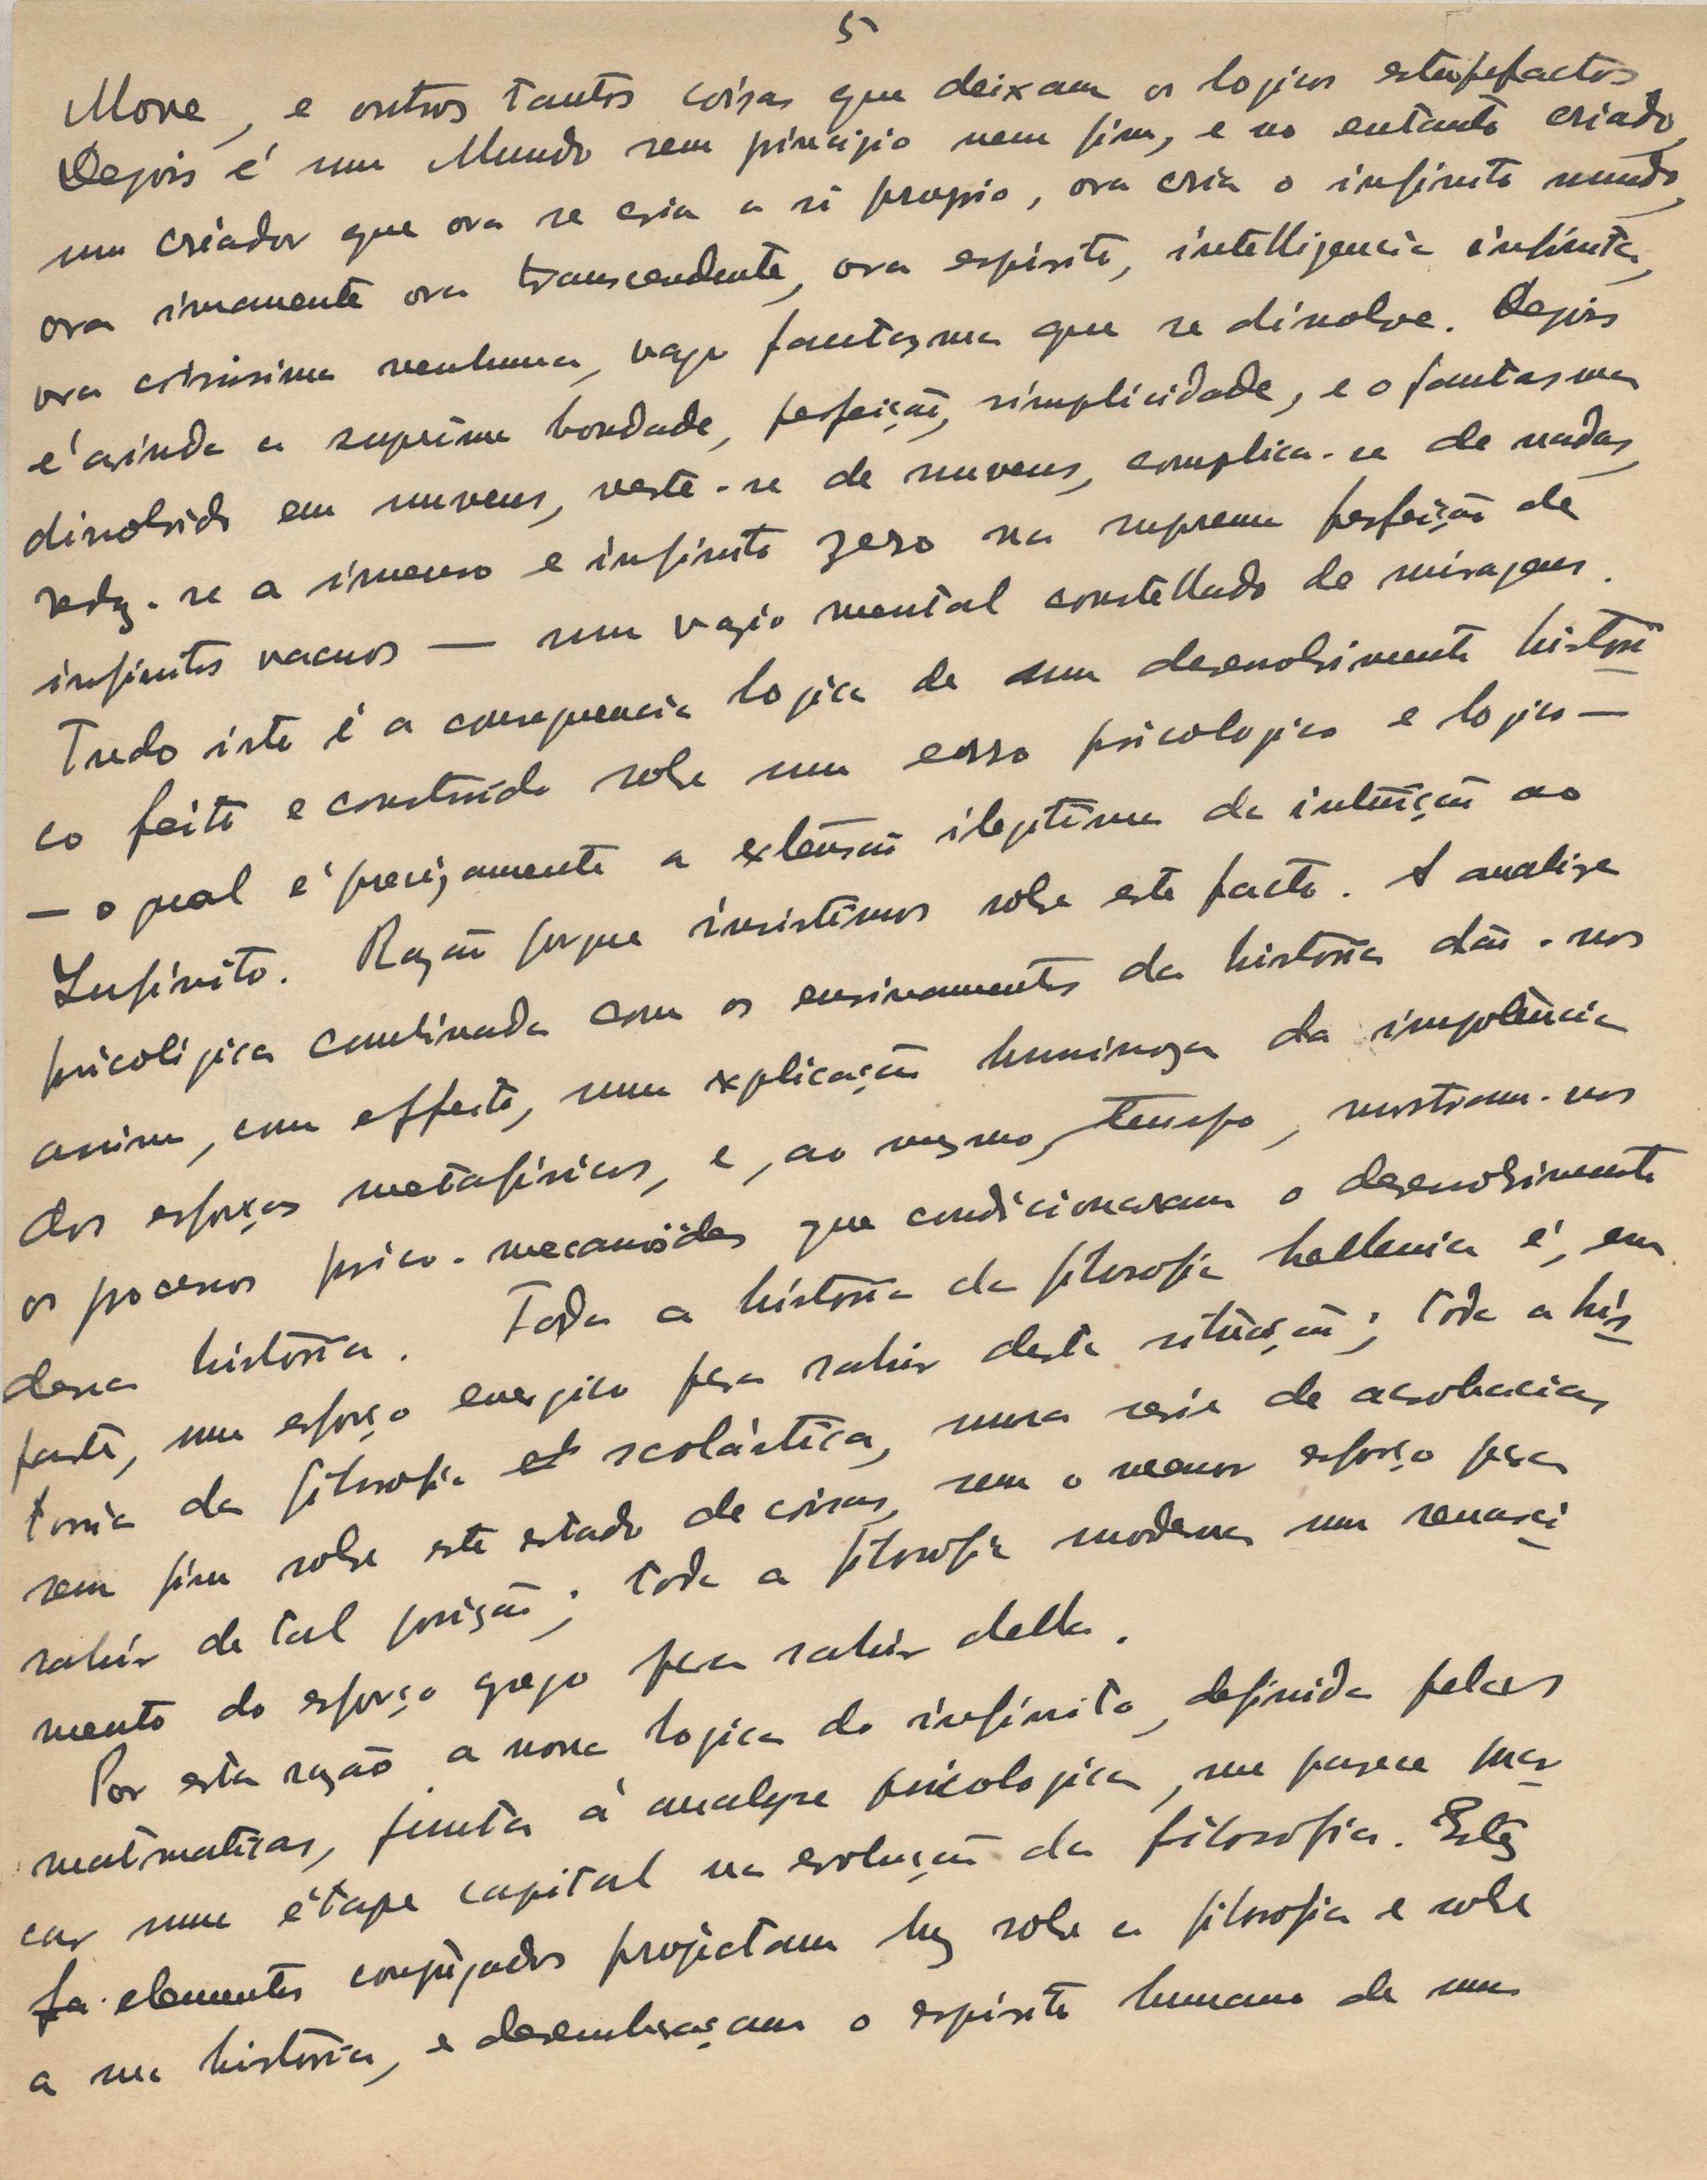 5
Move, e outros tantos coisas que deixam os logicos estupefactos
Depois é um Mundo sem principio nem fim, e no entanto criado,
um criador que ora se cria a si proprio, ora cria o infinito mundo,
ora imanente ora transcendente, ora espirito, intelligencia infinita,
ora coisissima nenhuma, vago fantasma que se dissolve. Depois
é ainda a suprema bondade, perfeição, simplicidade, e o fantasma
dissolvido em nuvens, veste-se de nuvens, complica-se de nadas,
reduz-se a imenso e infinito zero na suprema perfeição de
infinitos vacuos — um vazio mental constellado de miragens.
Tudo isto é a consequencia logica de um desenvolvimento histori
co feito e construido sobre um erro psicologico e logico —
— o qual é precizamente a extensão ilegitima da intuição ao
Infinito. Razão porque insistimos sobre este facto. A analize
psicologica combinada com os ensinamentos da historia dão-nos
assim, com effeito, uma explicação luminoza da impotência
dos esforços metafisicos, e, ao mesmo tempo, mostram-nos
os processos psico-mecanoides que condicionaram o desenvolvimento
dessa historia. Toda a historia da filosofia hellenica é, em
parte, um esforço energico para sahir desta situação; toda a his
toria da filosofia scolástica, uma serie de acrobacias
sem fim sobre este estado de coisas, sem o menor esforço para
sahir de tal posição; toda a filosofia moderna um renasci
mento do esforço grego para sahir della.
Por esta razão a nova logica do infinito, definida pelas
matmaticas, junta á analyse psicologica, me parece mar
car uma étape capital na evolução da filosofia. Estes
elementos conjugados projectam luz sobre a filosofia e sobre
a sua historia, e desembaraçam o espirito humano de uma